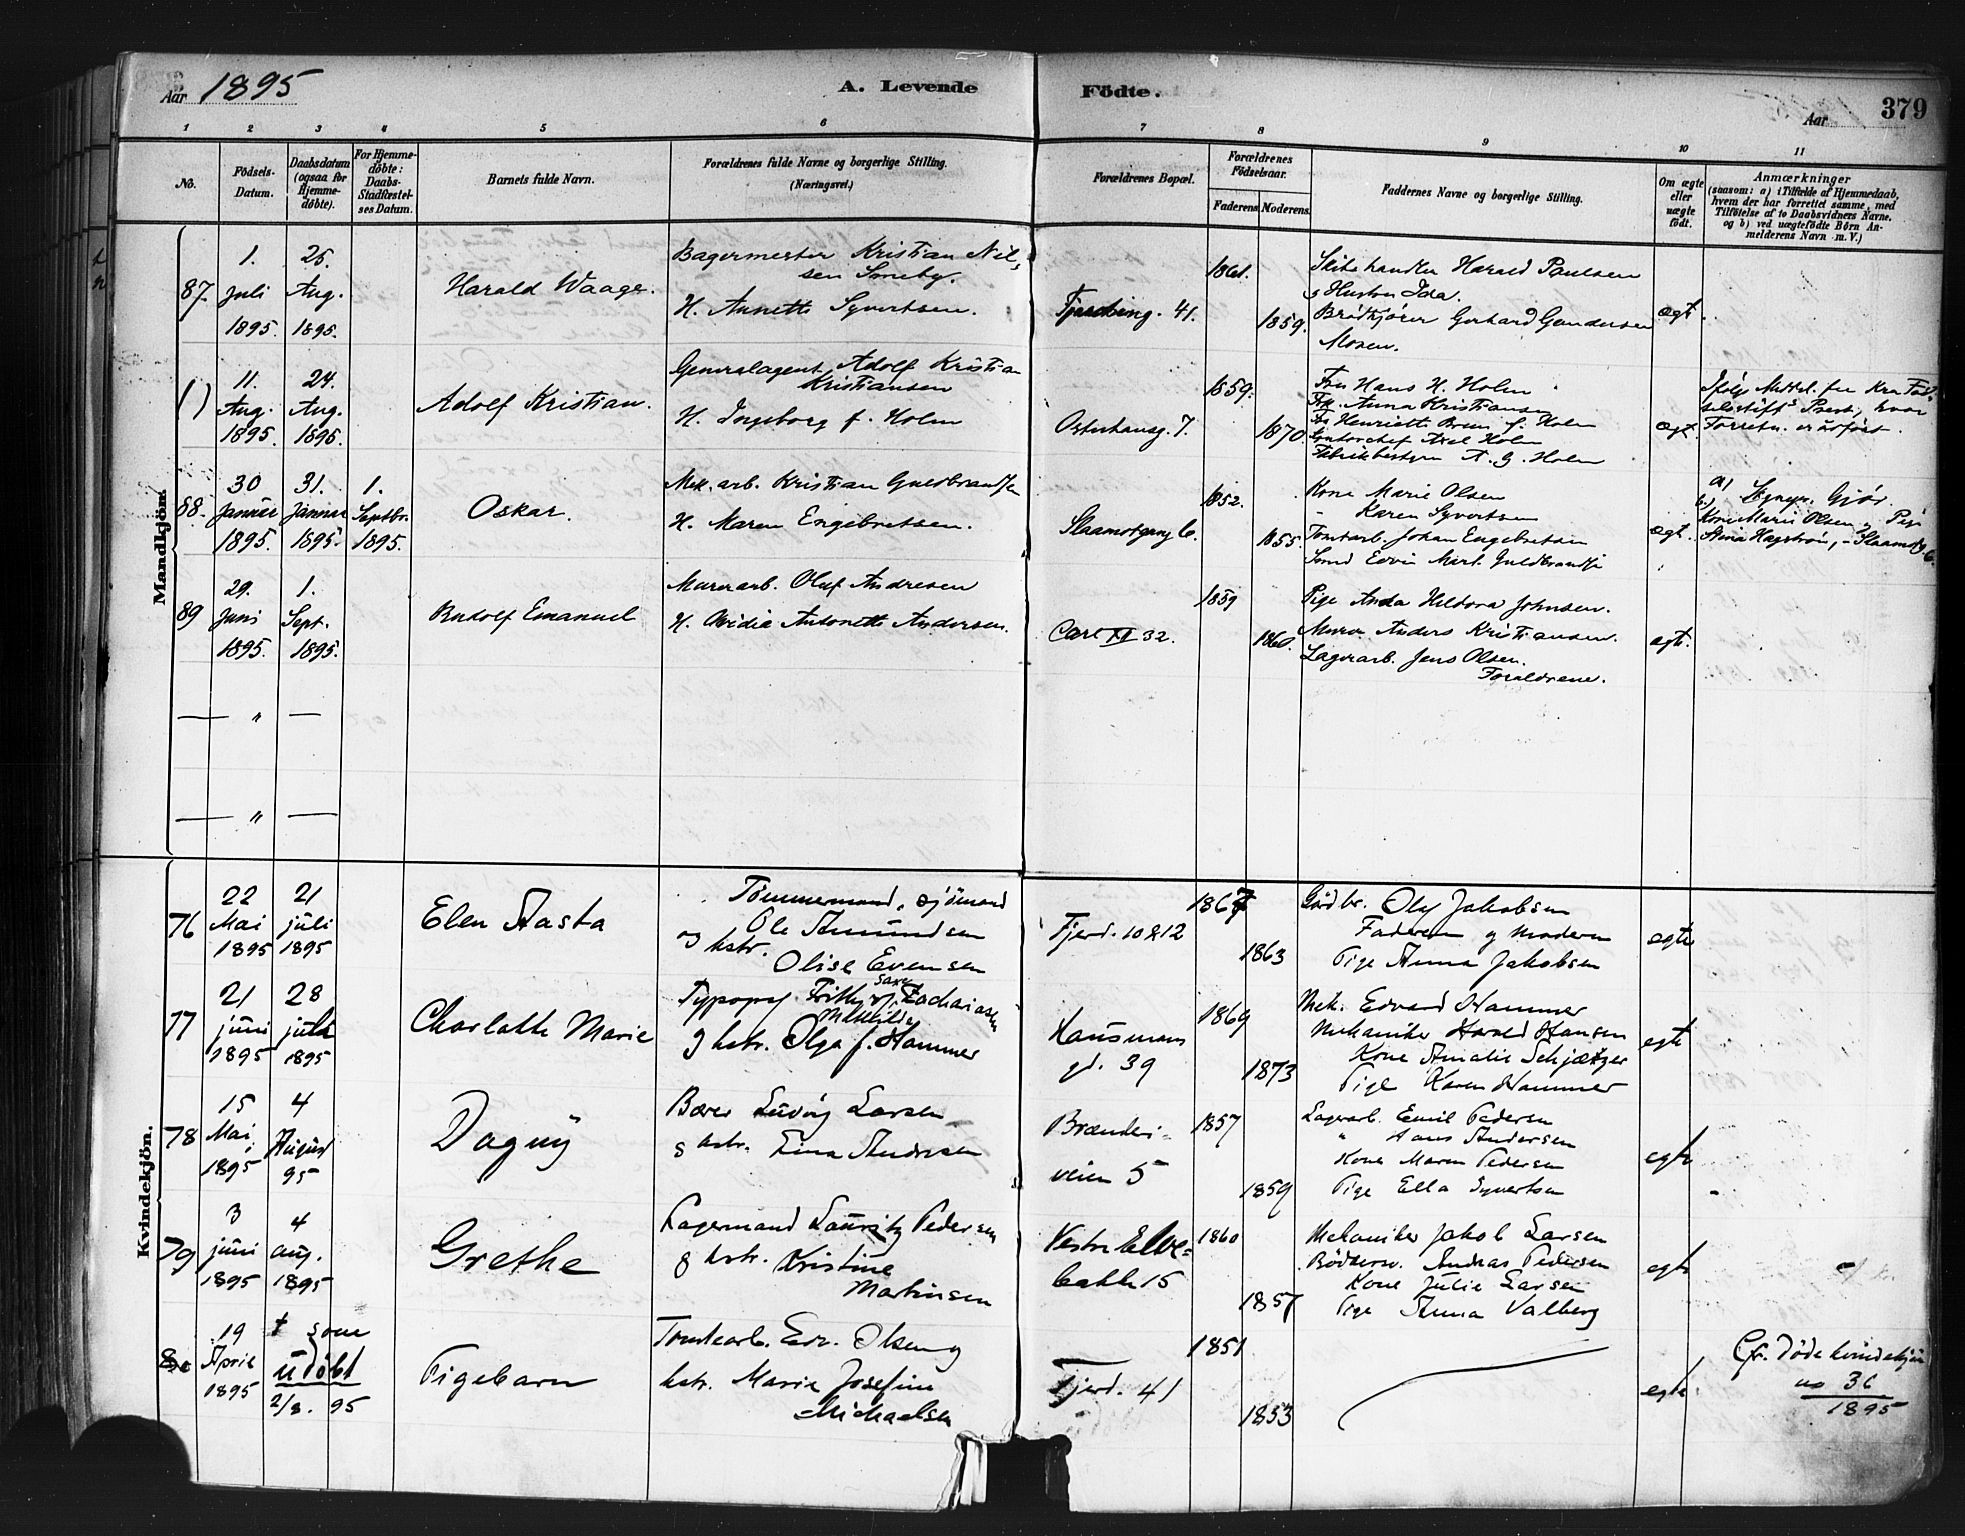 Aar 1895
A. Levende Födte.
Aar 379
1 2 3 4 5 6 7 8 9 10 11
No.
Födsels-Datum.
Daabsdatum (ogsaa for Hjemme-döbte).
For Hjemme-döbte: Daabs-Stadfæstel-ses Datum.
Barnets fulde Navn.
Forældrenes fulde Navne og borgerlige Stilling. (Næringsvei.)
Forældrenes Bopæl.
Forældrenes Födselsaar.
Faderens. Moderens.
Faddernes Navne og borgerlige Stilling.
Om ægte eller uægte födt.
Anmærkninger
(saasom: a) i Tilfælde af Hjemmedaab,
hvem der har forrettet samme, med
Tilföielse af to Daabsvidners Navne.
og b) ved uægtefödte Börn An-
melderens Navn m. V.)
Mandkjön.
87. 1. Juli 1895.
25. Aug. 1895.
Harald Waage.
Bagermester Kristian Nil-
sen Smeby.
H. Annette Syvertsen.
Fjerding. 41.
1861. 1859.
handler Harald Paulsen
g Hustru Ida.
Brödkjörer Gerhard Gundersen
Mosen.
ægt.
( ) 11. Aug. 1895.
24. Aug. 1895.
Adolf Kristian.
Generalagent Adolf Kristian
Kristiansen
H. Ingeborg f. Holm
Osterhausg. 7.
1859. 1870.
Fru Hans H. Holm
Frk. Anna Kristiansen
Fru Henriette Brun f. Holm
Kontorchef Axel Holm
Fabrikbestyrer A. G. Holm
ægt.
Ifölge Meddel. fra Kra Föd-
selsstift's Prest, hvor
Forretn. er udfört.
88. 30 Januar 1895.
31. Januar 1895.
1. Septbr. 1895.
Oskar.
Mek. arb. Kristian Guldbrandsen
H. Maren Engebretsen.
Slaamotgang 6.
1852. 1855.
Kone Marie Olsen
- Karen Syvertsen
Tomtearb. Johan Engebretsen
Smed Edvin Mart. Guldbrandsen
ægt.
a) Gjör.
b) Kone Marie Olsen, Pige
Stina Hagström, - Slaamotg. 6.
89 29. Juni 1895.
1. Sept. 1895.
Rudolf Emanuel
Murerarb. Oluf Andresen
H. Ovidia Antonette Andersen.
Carl XI 32.
1859 1860.
Pige Anda Heldora Johnsen.
Murer Anders Kristiansen.
Lagerarb. Jens Olsen.
Forældrene.
ægt.
— " —
— " —
Kvindekjön.
76 22 Mai 1895
21 juli 1895
Elen Aasta
Tömmermand, sjömand
Ole Amundsen
og hstr.
Olise Evensen
Fjerd. 10 & 12
1867 1863
Gårdbr. Oluf Jakobsen
Faderen g Moderen
Pige Anna Jakobsen
egte
77 21 juni 1895
28 juli 1895
Charlotte Marie
Typograf Frithjof Zachariasen
Mathilda
g hstr. Olga f. Hammer
Hausmans
gd. 39
1869 1873
Mek. Edvard Hammer
Mekaniker Harald Hansen
Kone Amalie Schjætzer
Pige Karen Hammer
egte
78 15 Mai 1895
4 August 95
Dagny
Bærer Ludvig Larsen
g hstr. Lina Andresen
Brænderi-
veien 5
1857 1859
Lagerarb. Emil Pedersen
" Hans Andersen
Kone Maren Pedersen
Pige Ella Syvertsen
egte
79 3 juni 1895
4 aug. 1895
Grethe
Lagermand Lauritz Pedersen
g hstr. Kristine
Martinsen
Vestre Elve-
bakke 15
1860 1857
Mekaniker Jakob Larsen
Bödkersv. Andreas Pedersen
Kone Julie Larsen
Pige Anna Valberg
egte
80 19 April 1895
† som
udöbt
2/8. 95
Pigebarn
Tomtearb. Edv. Olsen g
hstr. Marie Josefine
Michaelsen
Fjerd. 41
1851 1853
egte
Cfr. Döde kvindekjön
no 36
1895